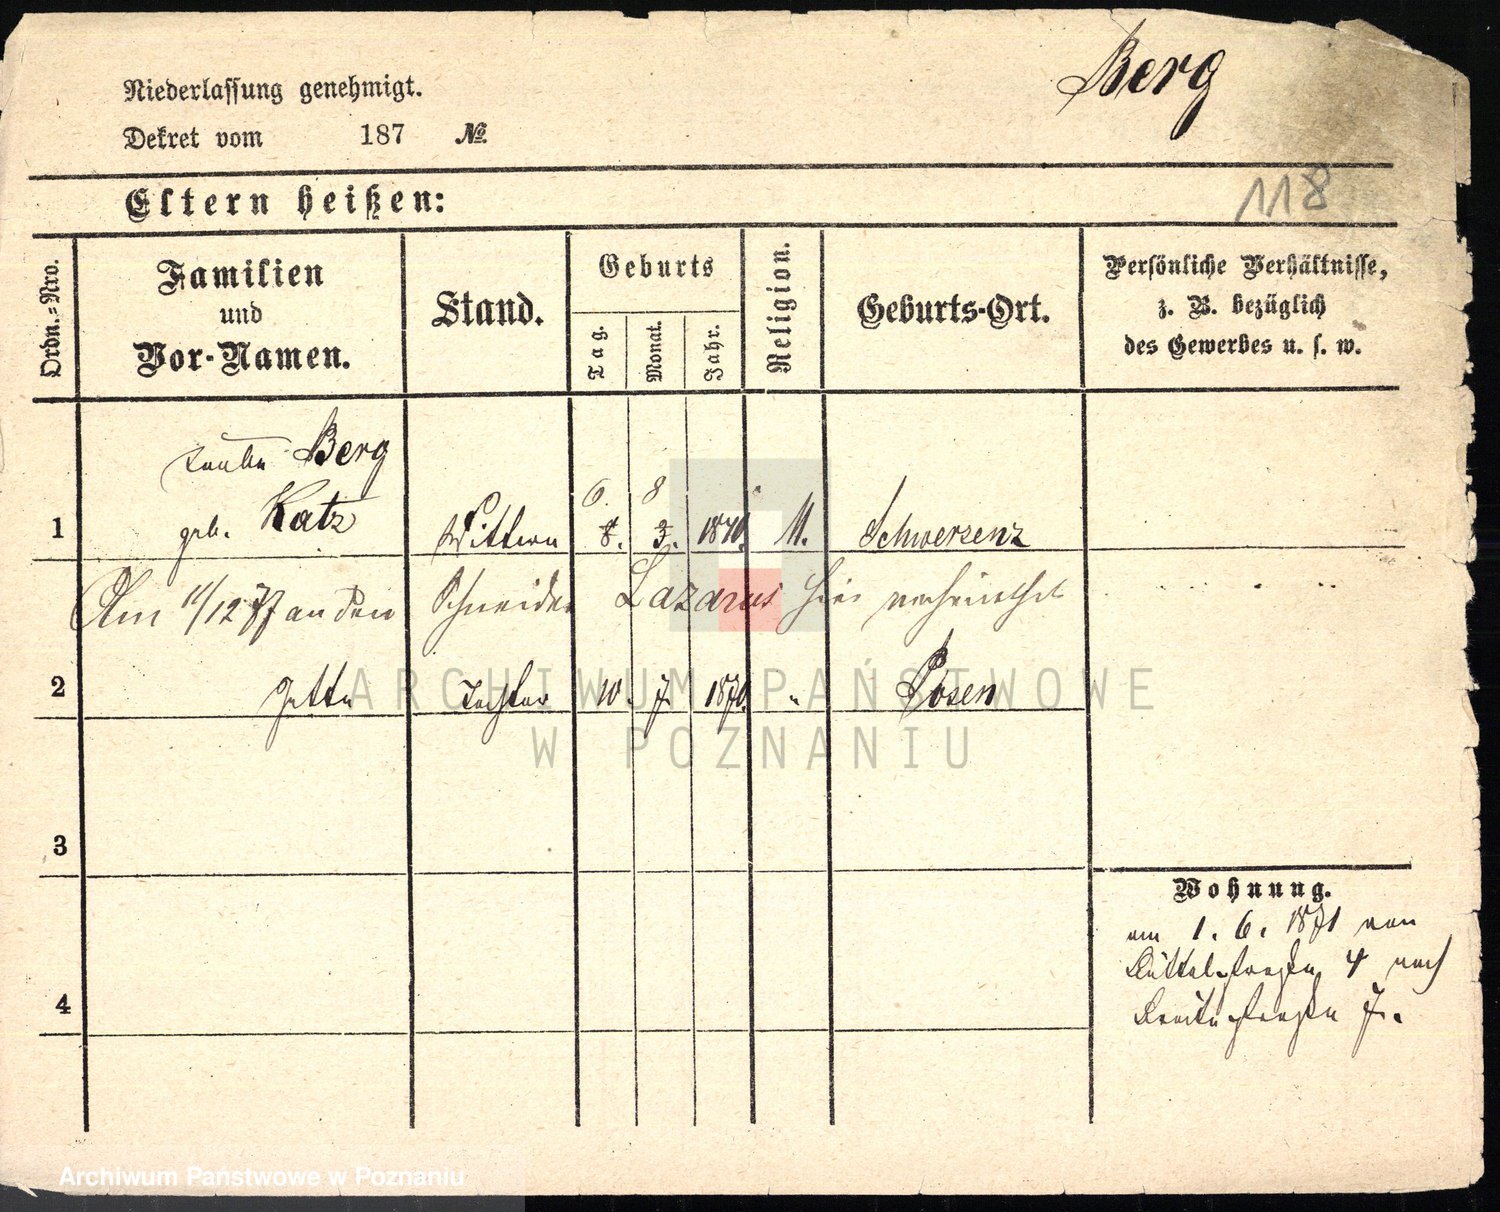 Berg
Niederlassung genehmigt.
Dekret vom 187 №
118
Eltern heißen:
Ordn.-Nro.
Familien
und
Vor-Namen.
Stand.
Geburts
Tag.
Monat.
Jahr.
Religion.
Geburts-Ort.
Persönliche Verhältnisse,
z. B. bezüglich
des Gewerbes u. s. w.
Taube Berg
6. 8
1 geb. Katz Wittwe 8. 3. M. Schwersenz
Am 11/12 77 an den Schneider Lazarus hier verheirathet
2 Jette Tochter 10. 7. 1870. " Posen
3
4
Wohnung.
am 1. 6. 1871 von
Büttelstraße 4 nach
Breitestraße 7.
ARCHIWUM PAŃSTWOWE
W POZNANIU
Archiwum Państwowe w Poznaniu